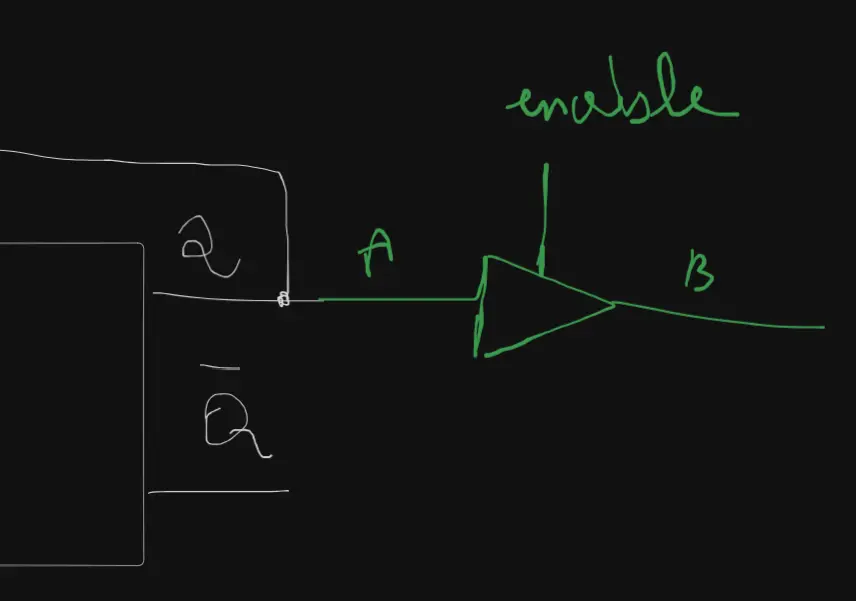 enable
Q
A
B
Q̅